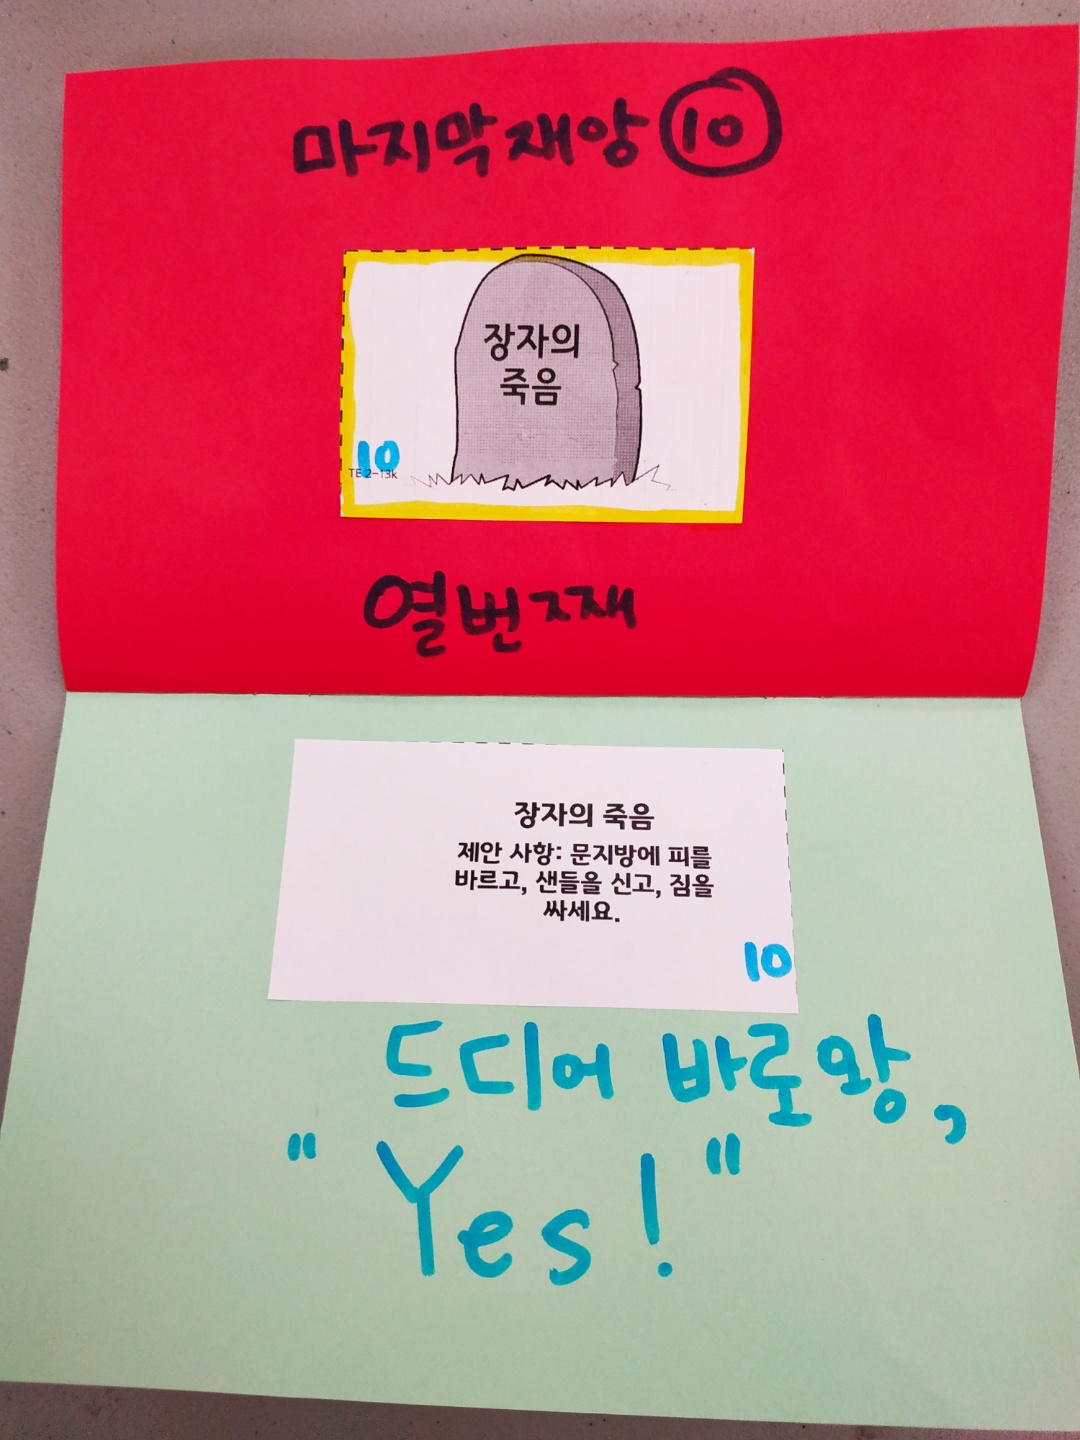 마지막 재앙 ⑩
장자의
죽음
10
TE 2-13k
열번째
장자의 죽음
제안 사항: 문지방에 피를
바르고, 샌들을 신고, 짐을
싸세요.
10
드디어 바로왕,
"Yes!"